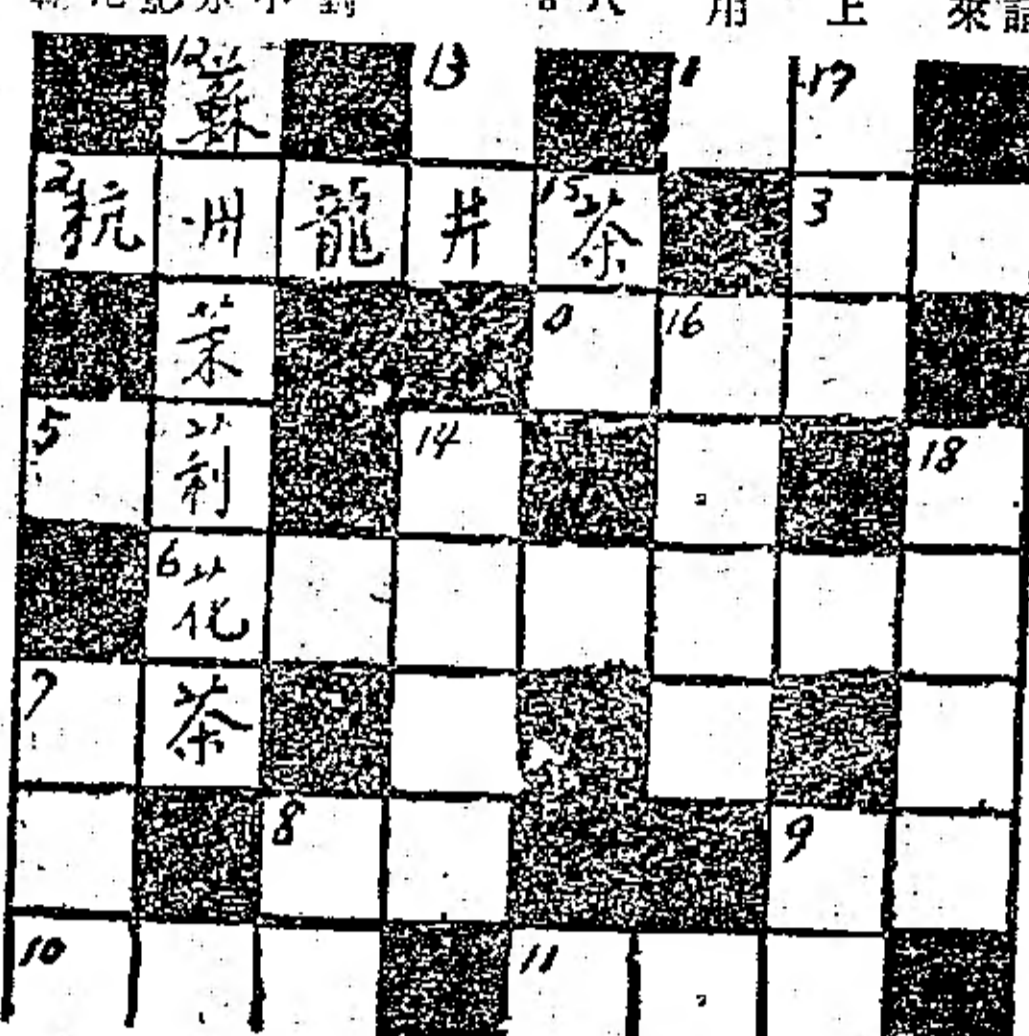 用 上 來
12 蘇 13 1 17
2 杭 州 龍 井 15 茶 3
茉 16
5 莉 14 18
6 花
7 茶
8 9
10 11